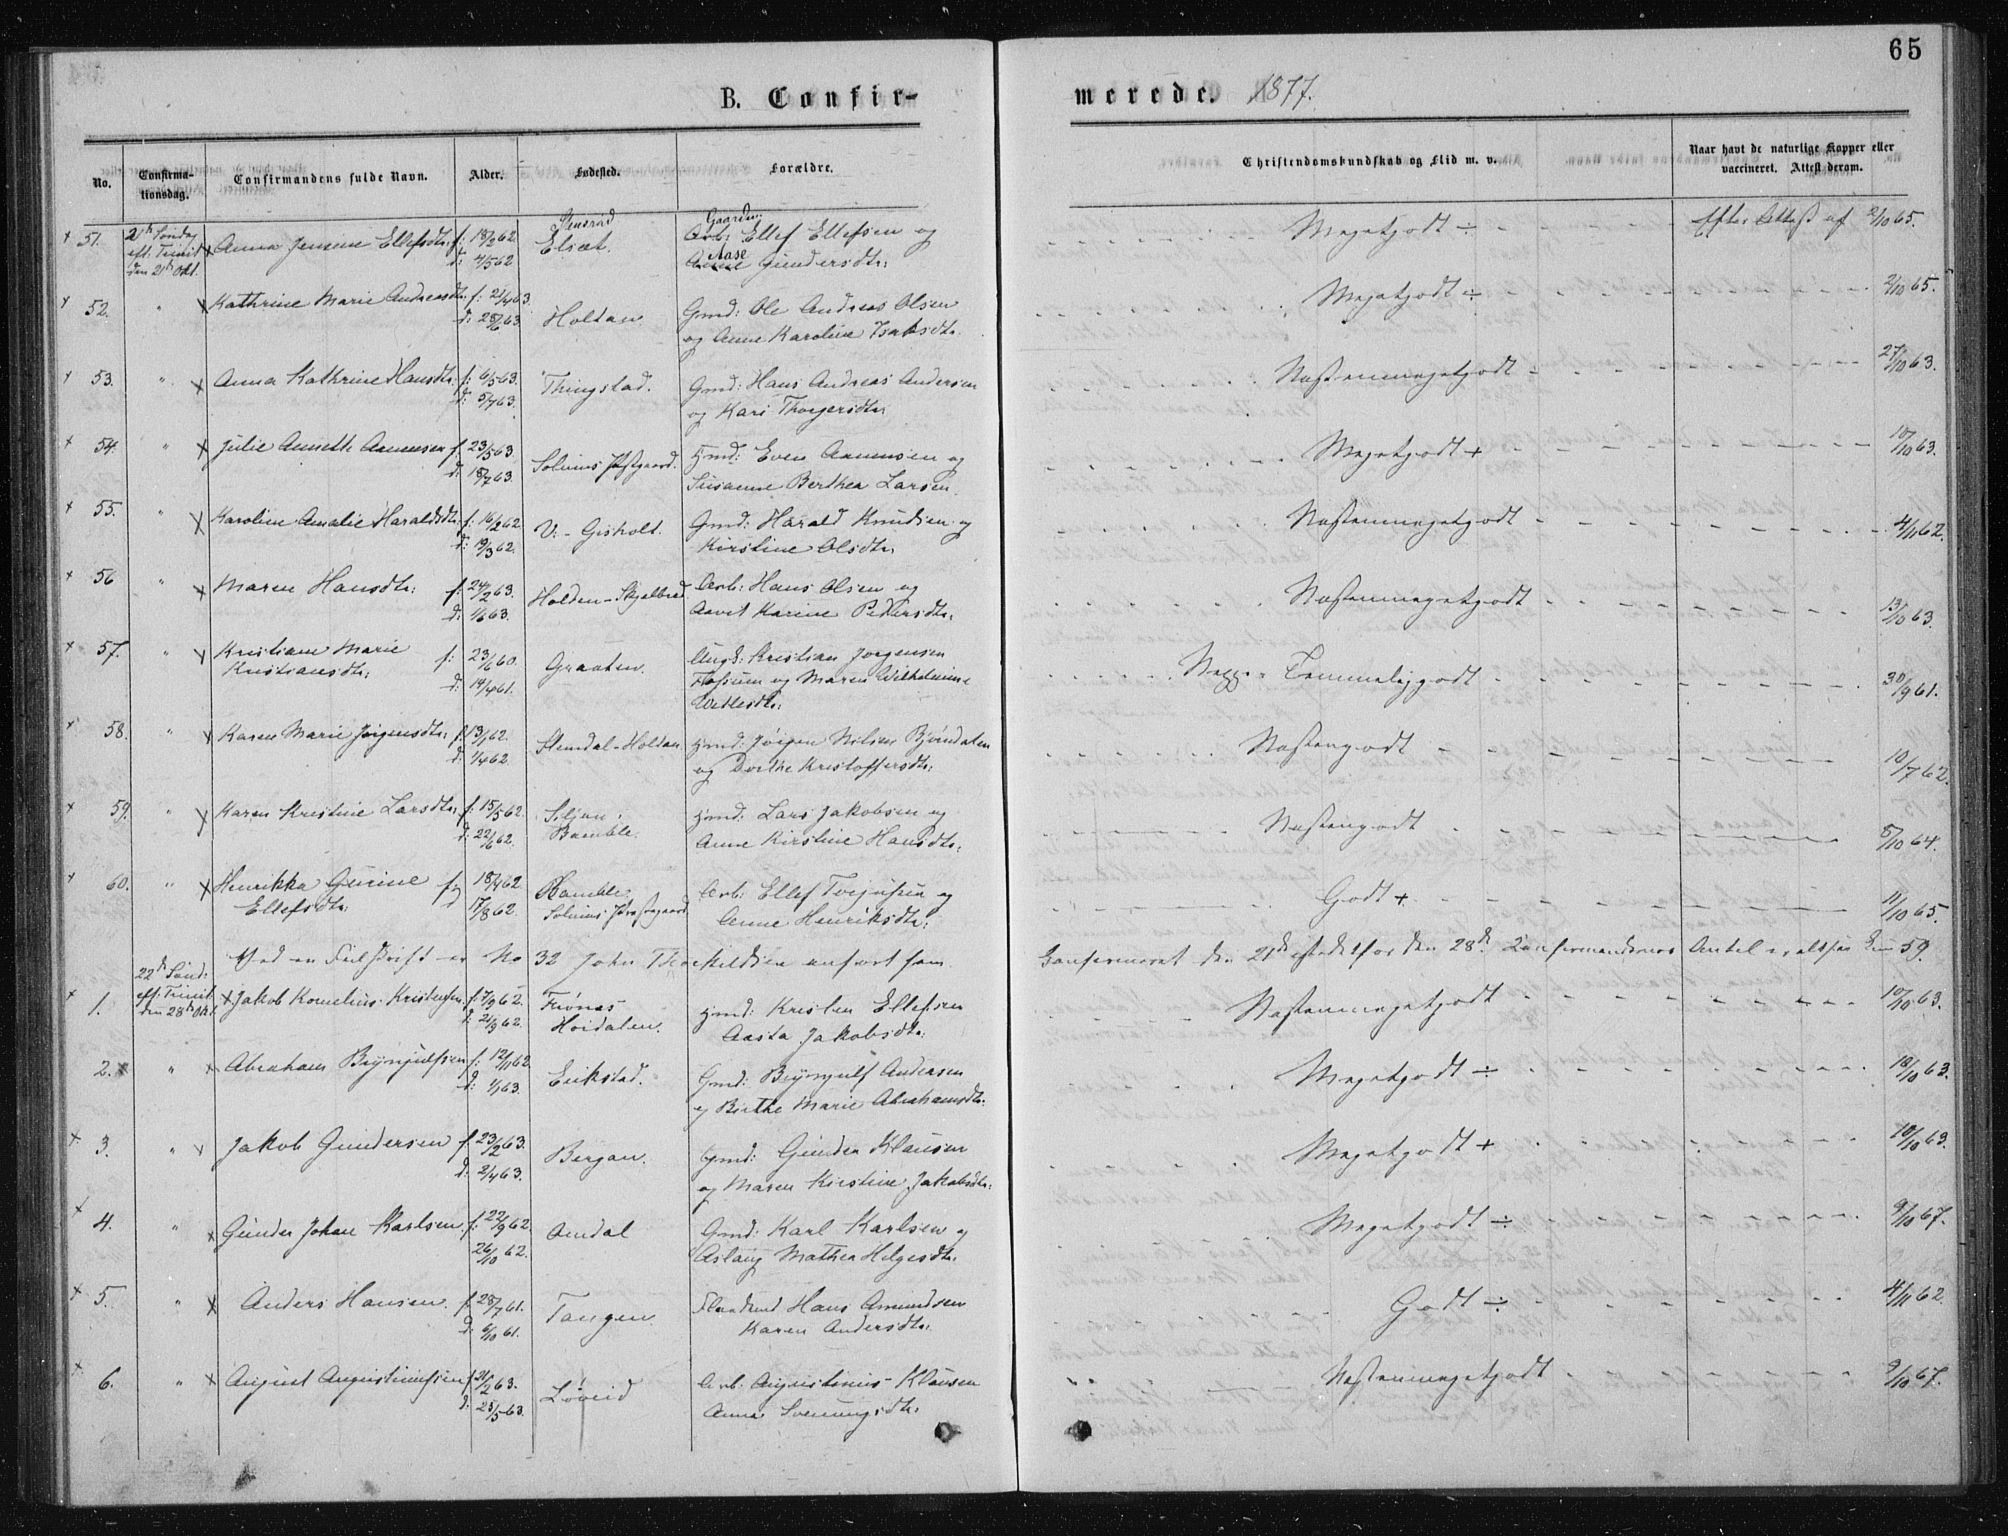 65
B. Confir-
merede. 1877.
No.
Confirma-
tionsdag.
Confirmandens fulde Navn.
Alder.
Fødested.
Forældre.
Christendomskundskab og Flid m. v.
Naar havt de naturlige Kopper eller
vaccineret. Attest derom.
51. 21de Søndag
eft. Trinit.
den 21de Okt.
Anna Jensine Ellefsdtr: f: 18/2 62.
d: 4/5 62
Stensrød
Elset.
Gaardm.
Arb: Ellef Ellefsen og
Aase
Anne Gundersdtr:
Megetgodt ÷ Efter Attest af 2/10 65.
52. " Kathrine Marie Andreasdtr. f: 21/4 63.
d: 28/6 63
Holtan
Gmd: Ole Andreas Olsen
og Anne Karoline Isaksdtr.
Megetgodt ÷ 2/10 65.
53. " Anna Kathrine Hansdtr. f: 6/5 63.
d: 5/7 63.
Thingstad.
Gmd: Hans Andreas Andersen
og Kari Thorgersdtr.
Næstenmegetgodt 27/10 63.
54. " Julie Annette Aamensen f. 23/5 63
d: 18/7 63.
Solums Præstgaard.
Hmd: Even Aamensen og
Susanne Berthea Larsen.
Megetgodt + 10/10 63.
55. " Karoline Amalie Haraldsdtr. f: 16/2 62.
d: 19/3 62.
V. - Gisholt.
Gmd: Harald Knudsen og
Kirstine Olsdtr.
Næstenmegetgodt 4/11 62.
56 " Maren Hansdtr: f: 24/2 63.
d: 1/6 63.
Holden - Skjelbred
Arb: Hans Olsen og
Karine Pedersdtr.
Næstenmegetgodt 13/10 63.
57. " Kristiane Marie
Kristiansdtr: f: 23/6 60.
d: 14/4 61.
Graaten.
Kristian Jørgensen
Fossum og Maren Wilhelmine
Næppe Temmeliggodt 30/9 61.
58. " Karen Marie Jørgensdtr: f. 13/1 62.
d: 1/4 62
Slemdal - Holdan.
Hmd: Jørgen Nilsen Bjørndalen
og Dorthe Kristoffersdtr:
Næstengodt 10/7 62.
59. " Karen Kristine Larsdtr: f: 15/5 62.
d: 22/6 62.
Siljan.
Bamble.
Hmd: Lars Jakobsen og
Anne Kirstine Hansdtr:
Næstengodt 5/10 64.
60. " Henrikka Gurine
Ellefsdtr: 18/4 62
17/8 62.
Bamble
Solums Præstegaard
Arb: Ellef Torjusen og
Anne Henriksdtr:
Godt + 11/10 65.
Ved en Feilskrift er No 32 John Thorkildsen anført som
Confirmeret den 21de istedetfor den 28de. Confirmandernes Antal er altsaa kun 59.
1. 22de Sønd:
eft. Trinit.
den 28de Okt.
Jakob Kornelius Kristensen. f. 7/3 62.
d: 21/9 62.
Frønes
Høidalen.
Hmd: Kristen Ellefsen
Aasta Jakobsdtr:
Næstenmegetgodt 10/10 63.
2. " Abraham Brynjulfsen f: 12/11 62.
d: 1/1 63.
Erikstad.
Gmd: Brynjulf Andersen
og Birthe Marie Abrahamsdtr.
Megetgodt ÷ 10/10 63.
3. " Jakob Gundersen f. 23/2 63.
d: 2/4 63.
Bergan.
Gmd: Gunder Klausen
og Maren Kirstine Jakobsdtr:
Megetgodt + 10/10 63.
4. " Gunder Johan Karlsen f: 22/9 62.
26/10 62.
Omdal
Gmd: Karl Karlsen og
Aslaug Mathea Helgesdtr.
Megetgodt ÷ 9/10 67.
5. " Anders Hansen. f. 28/7 61.
d: 6/10 61.
Tangen
Hans Amundsen
Karen Andersdtr:
Godt ÷ 4/11 62.
6. " August Augustinusen f. 21/2 63.
d: 25/5 63.
Løveid
Arb: Augustinus Klausen
Anne Svenungsdtr.
Næstenmegetgodt 9/10 67.